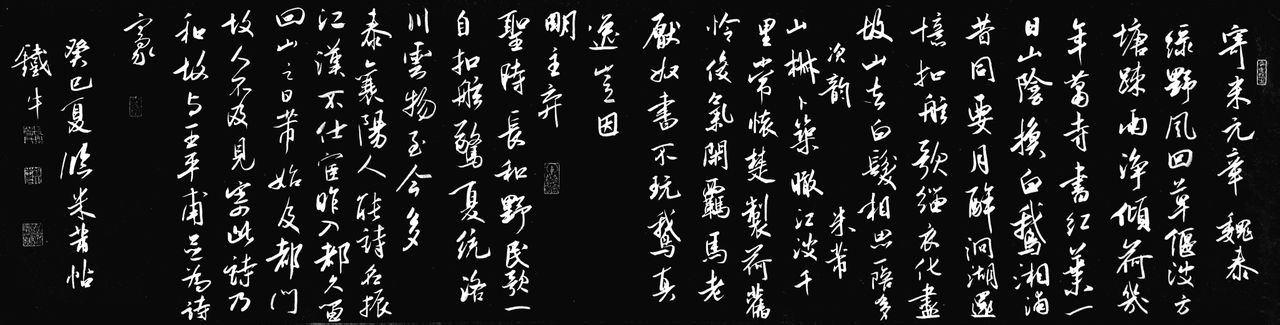 寄米元章 魏泰
綠野風回草偃波方
塘疎雨淨傾荷幾
年蕭寺書紅葉一
日山陰換白鵝湘浦
昔同要月醉洞湖還
憶扣舷歌緇衣化盡
故山去白髮相思一陪多
次韵 米芾
山椒卜築瞰江波千
里常懷楚製荷舊
怜俊氣閑羈馬老
厭奴書不玩鵝真
逸豈因
明主弃
聖時長和野民歌一
自扣舷驚夏統洛
川雲物至今多
泰襄陽人能詩名振
江漢不仕宦昨入都久留
回山之日芾始及都門
故人不及見寄此詩乃
和故与王平甫並為詩
豪
癸巳夏臨米芾帖
鐵牛